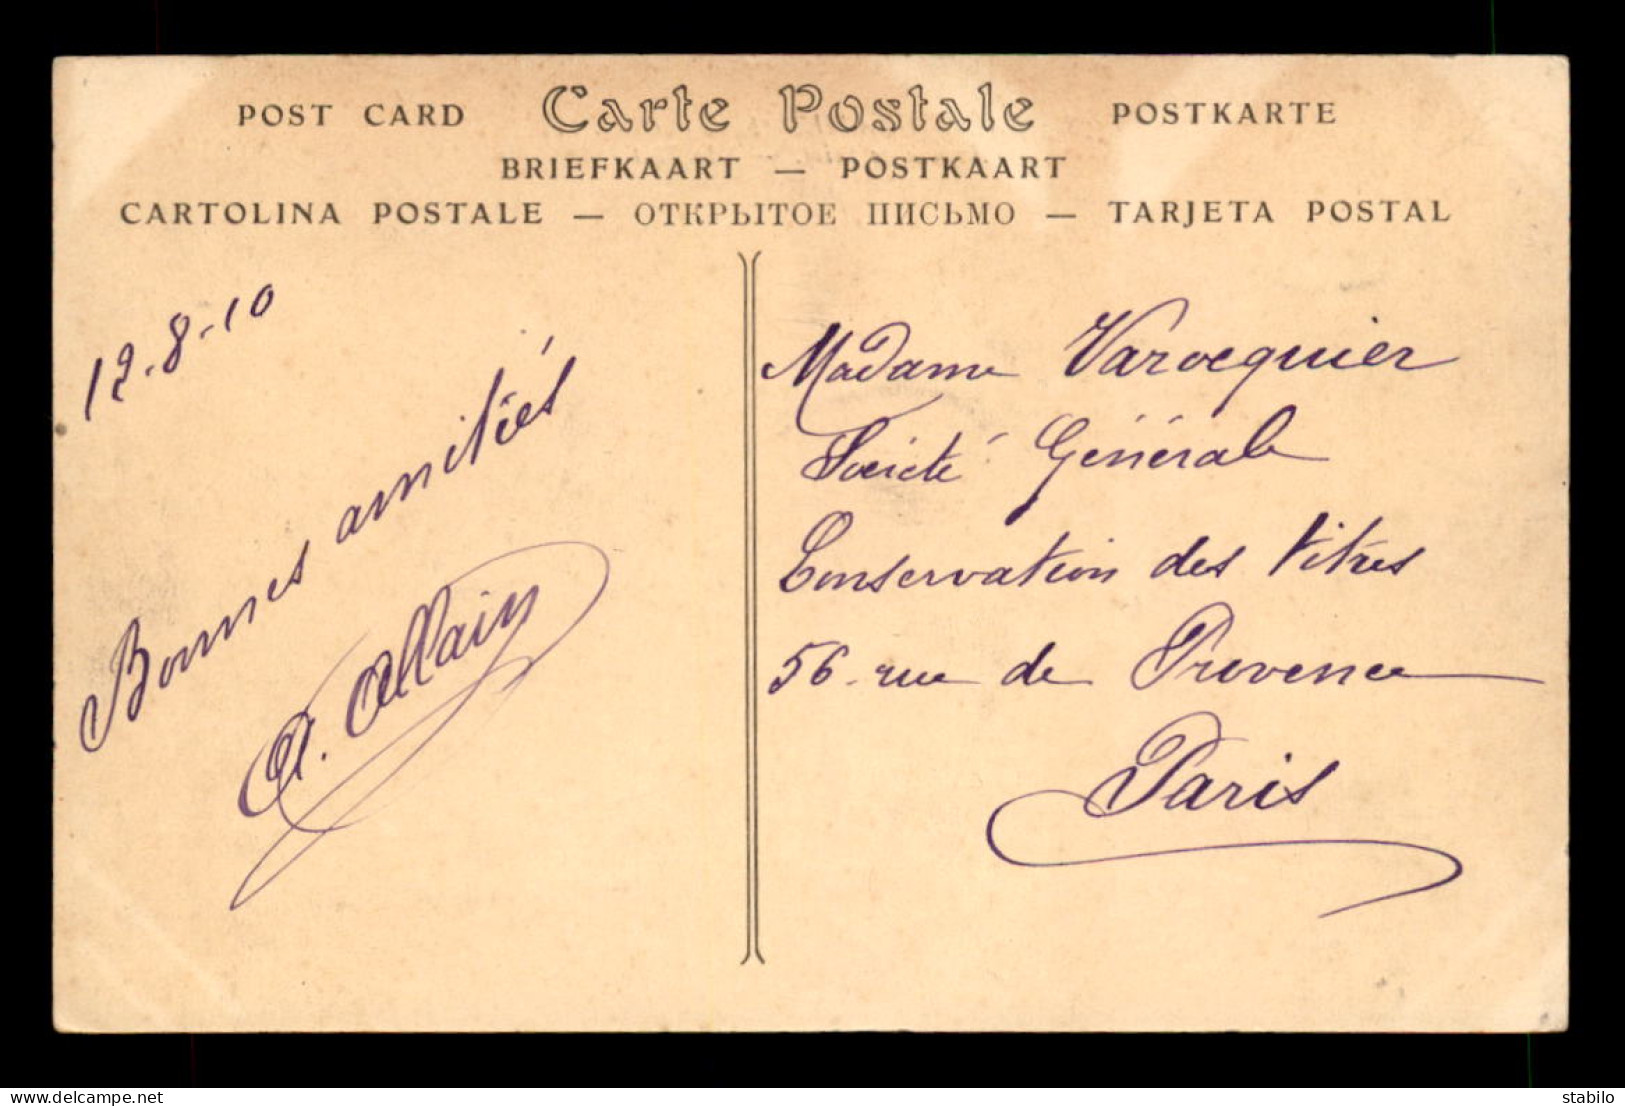 POST CARD Carte Postale POSTKARTE
BRIEFKAART — POSTKAART
CARTOLINA POSTALE — ОТКРЫТОЕ ПИСЬМО — TARJETA POSTAL
12.8.10
Bonnes amitiés
A. Allain
Madame Varocquier
Société Générale
Conservation des titres
56. rue de Provence
Paris
delcampe.net
stabilo